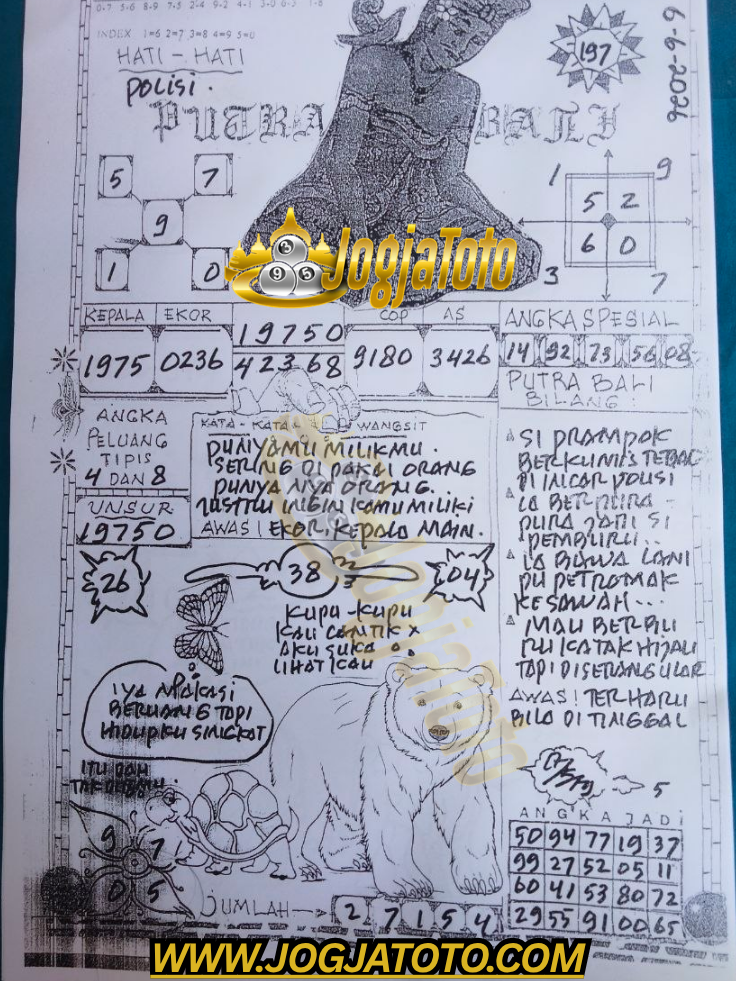 0-7 5-6 8-9 7-5 2-4 9-2 4-1 3-0 6-3 1-8
INDEX 1=6 2=7 3=8 4=9 5=0
HATI - HATI
POLISI .
PUTRA BALI
197
6-6-2026
5 7
9
1 0
1 9
5 2
6 0
3 7
JogjaToto
KEPALA EKOR
1975 0236
19750
42368
COP AS
9180 3426
ANGKA SPESIAL
14 92 73 56 08
ANGKA
PELUANG
TIPIS
4 DAN 8
UNSUR
19750
KATA - KATA WANGSIT
PUNYAMU MILIKMU .
SERING DI PAKAI ORANG
PUNYA NYA ORANG.
JUSTRU INGIN KAMU MILIKI
AWAS ! EKOR. KEPALA MAIN.
PUTRA BALI
BILANG :
SI PRAMPOK
BERKUMIS TEBAL
DI INCAR POLISI
IA BERPURA -
PURA JADI SI
PEMBURU..
IA BAWA LAM
PU PETROMAK
KESAWAH ...
MAU BERBU
RU KATAK HIJAU
TAPI DISERANG ULAR
AWAS ! TERHARU
BILA DI TINGGAL
26
38
3
04
KUPU - KUPU
KAU CANTIK
AKU SUKA
LIHAT KAU
IYA APAKASI
BERUANG TAPI
HIDUPKU SINGKAT
ITU DAH
9 7
0 5
JUMLAH
2 7 1 5 4
5
ANGKA JADI
50 94 77 19 37
99 27 52 05 11
60 41 53 80 72
29 55 91 00 65
WWW.JOGJATOTO.COM